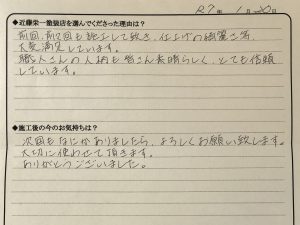 R7年 1月 20日
◆近藤栄一塗装店を選んでくださった理由は?
前回、前々回も施工して頂き、仕上げの綺麗さ等、
大変満足しています。
職人さんの人柄も皆さん素晴らしく、とても信頼
しています。
◆施工後の今のお気持ちは?
次回もなにかありましたら、よろしくお願い致します。
大切に使わせて頂きます。
ありがとうございました。